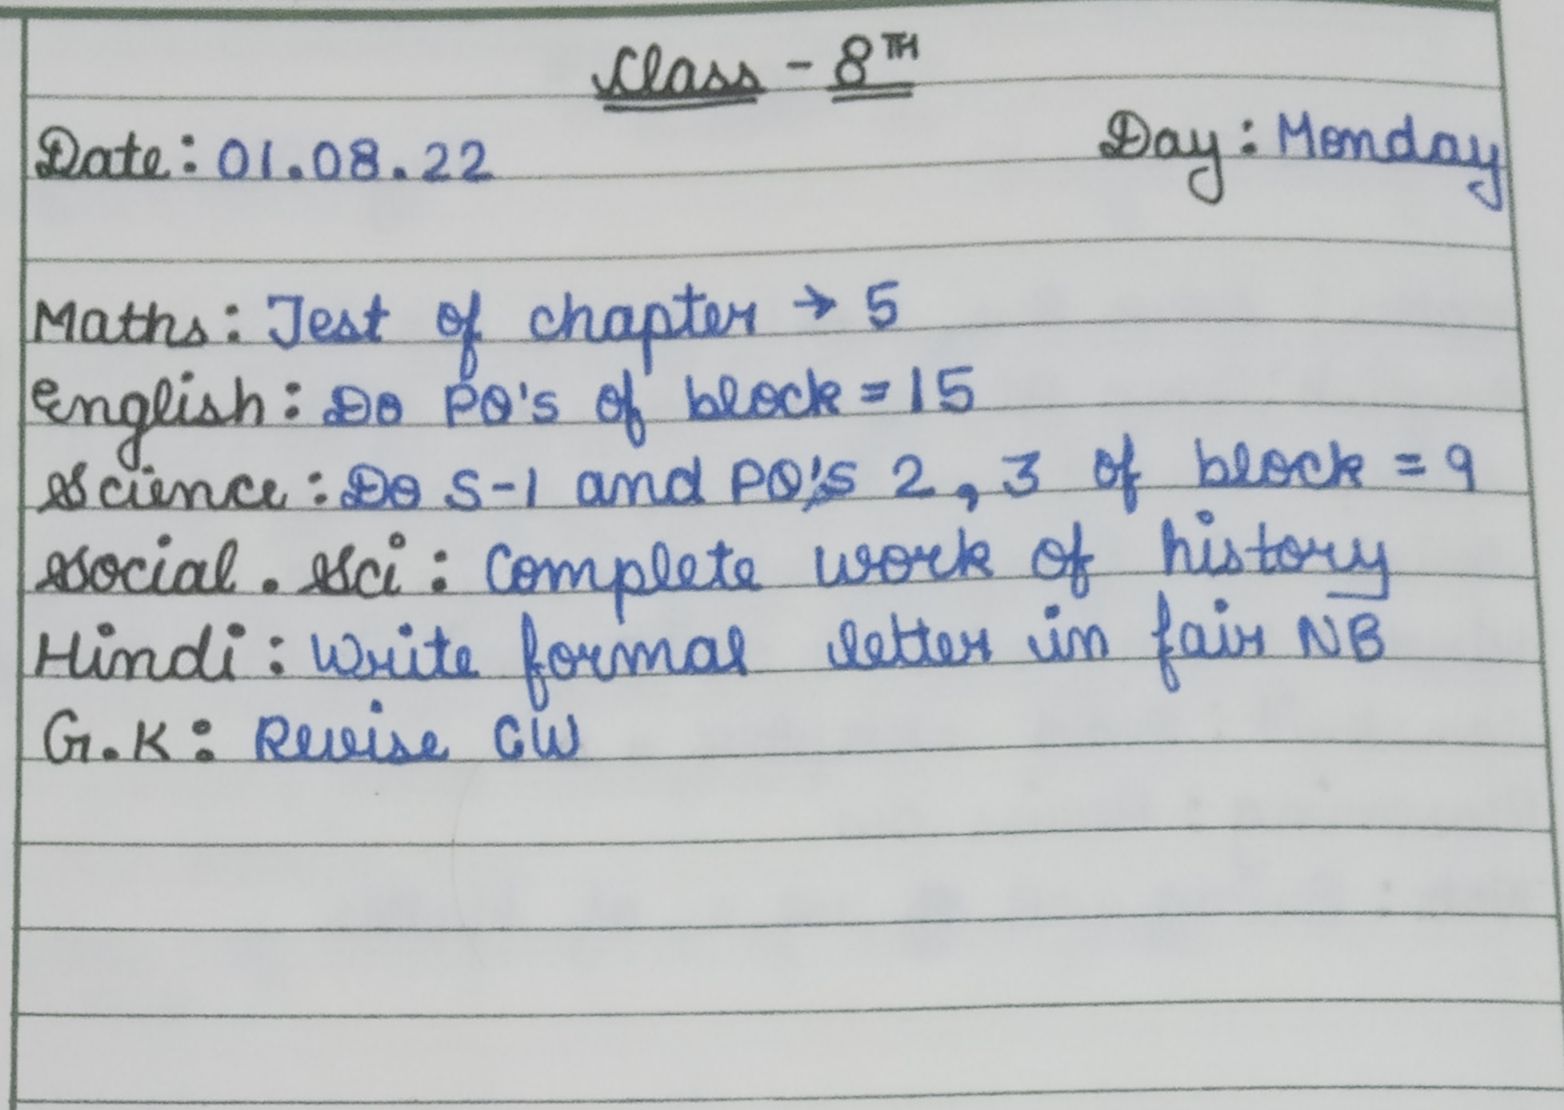 Class - 8TH
Date: 01.08.22 Day: Monday
Maths: Test of chapter → 5
English: Do PQ's of block = 15
Science: Do S-1 and PQ's 2, 3 of block = 9
Social. Sci: Complete work of history
Hindi: Write formal letter in fair NB
G.K: Revise CW